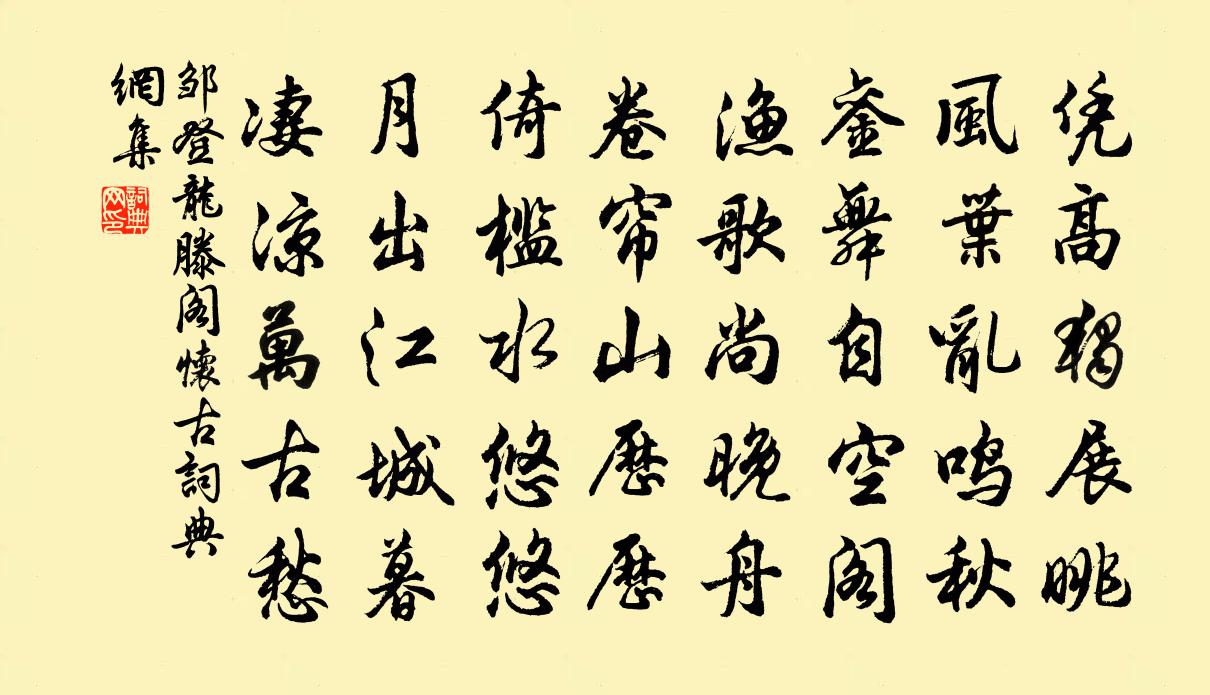 凭高獨展眺
風葉亂鳴秋
鑾舞自空閣
漁歌尚晚舟
卷帘山歷歷
倚檻水悠悠
月出江城暮
凄涼萬古愁
邹登龍滕阁懷古詞典
網集
詞典网印